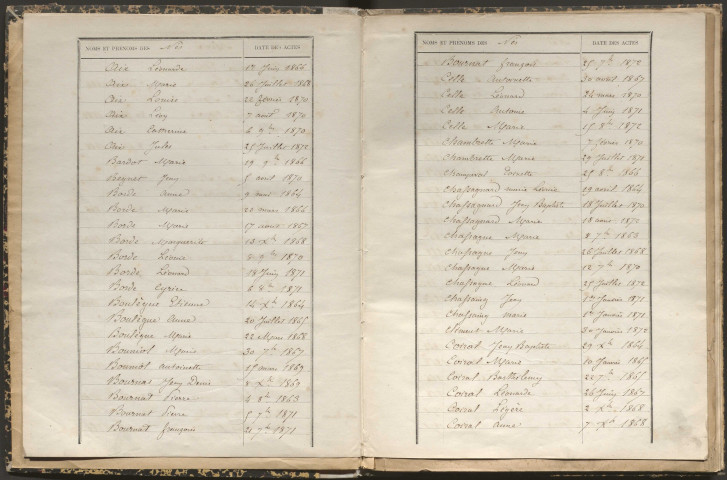 NOMS ET PRÉNOMS DES Nés DATE DES ACTES
Aix Léonarde 1er Juin 1866
Aix Marie 26 Juillet 1868
Aix Louise 22 février 1870
Aix 7 août 1870
Aix Catherine 6 9bre 1870
Aix Jules 25 Juillet 1872
Bardot Marie 19 9bre 1866
5 août 1870
Borde Anne 9 mai 1864
Borde Marie 20 mars 1866
Borde Marie 17 août 1867
Borde Marguerite 12 Xbre 1868
Borde Léonie 8 9bre 1870
Borde Léonard 18 Juin 1871
Borde 6 8bre 1871
Boutèque Etienne 14 Xbre 1864
Boutèque Anne 20 Juillet 1865
Boutèque Marie 22 Mars 1868
Bouniol Marie 30 7bre 1867
Bouniol antoinette 15 mars 1869
Bournat Jean 2 Xbre 1869
Bournat Pierre 4 8bre 1863
Bournat Pierre 5 7bre 1871
Bournat françois 21 7bre 1871
NOMS ET PRÉNOMS DES Nés DATE DES ACTES
Bournat françois 25 7bre 1872
Celle Antoinette 30 août 1867
Celle Léonard 24 mars 1870
Celle Antoine 4 Juin 1871
Celle Marie 15 8bre 1872
Chambrette Marie 7 février 1870
Chambrette Marie 29 Juillet 1871
25 8bre 1866
Chassagnard marie 29 août 1864
Chassagnard Jean Baptiste 18 Juillet 1870
Chassagnard Marie 18 août 1872
Chassagne Marie 8 7bre 1863
Chassagne Jean 26 Juillet 1868
Chassagne Marie 12 7bre 1870
Chassagne Léonard 25 Juillet 1872
Chassaing Jean 1er Janvier 1871
Chassaing marie 1er Janvier 1871
Marie 30 Janvier 1872
Coiral Jean Baptiste 29 Xbre 1864
Coiral Marie 10 Janvier 1865
Coiral Barthélemy 22 7bre 1865
Coiral Léonarde 26 Juin 1867
Coiral Légère 2 Xbre 1868
Coiral Anne 7 Xbre 1868